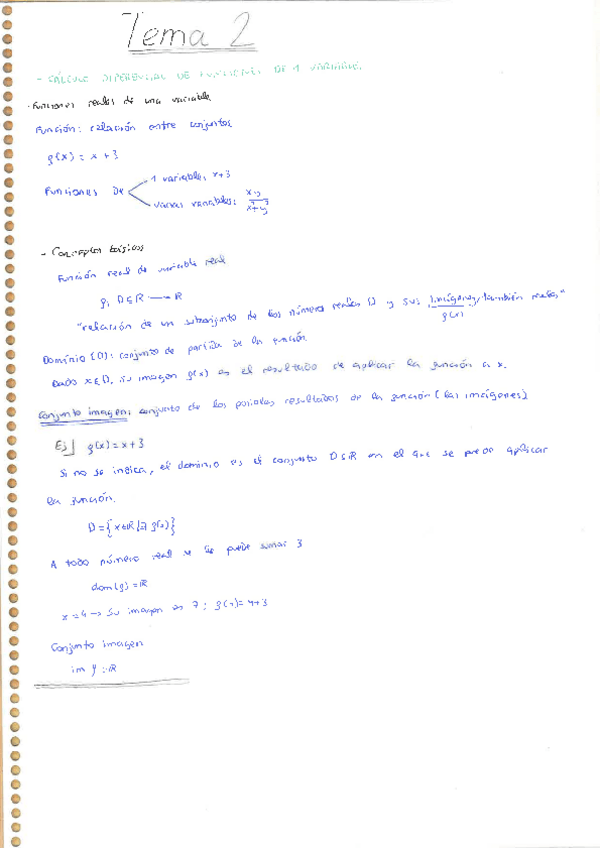 Tema 2
- CÁLCULO DIFERENCIAL DE FUNCIONES DE 1 VARIABLE.
- Funciones reales de una variable
Función: relación entre conjuntos
f(x) = x + 3
Funciones de
1 variable: x+3
varias variables: xy / x+y
- Conceptos básicos
Función real de variable real
f: D⊆ℝ → ℝ
"relación de un subconjunto de los números reales D y sus imágenes, también reales"
f(x)
Dominio (D): conjunto de partida de la función.
Dado x∈D, su imagen f(x) es el resultado de aplicar la función a x.
Conjunto imagen: conjunto de los posibles resultados de la función (las imágenes)
Ej] f(x) = x+3
Si no se indica, el dominio es el conjunto D⊆ℝ en el que se puede aplicar
la función.
D = {x∈ℝ/∃ f(x)}
A todo número real se le puede sumar 3
dom(f) = ℝ
x=4 → Su imagen es 7 : f(4) = 4+3
Conjunto imagen
im f : ℝ